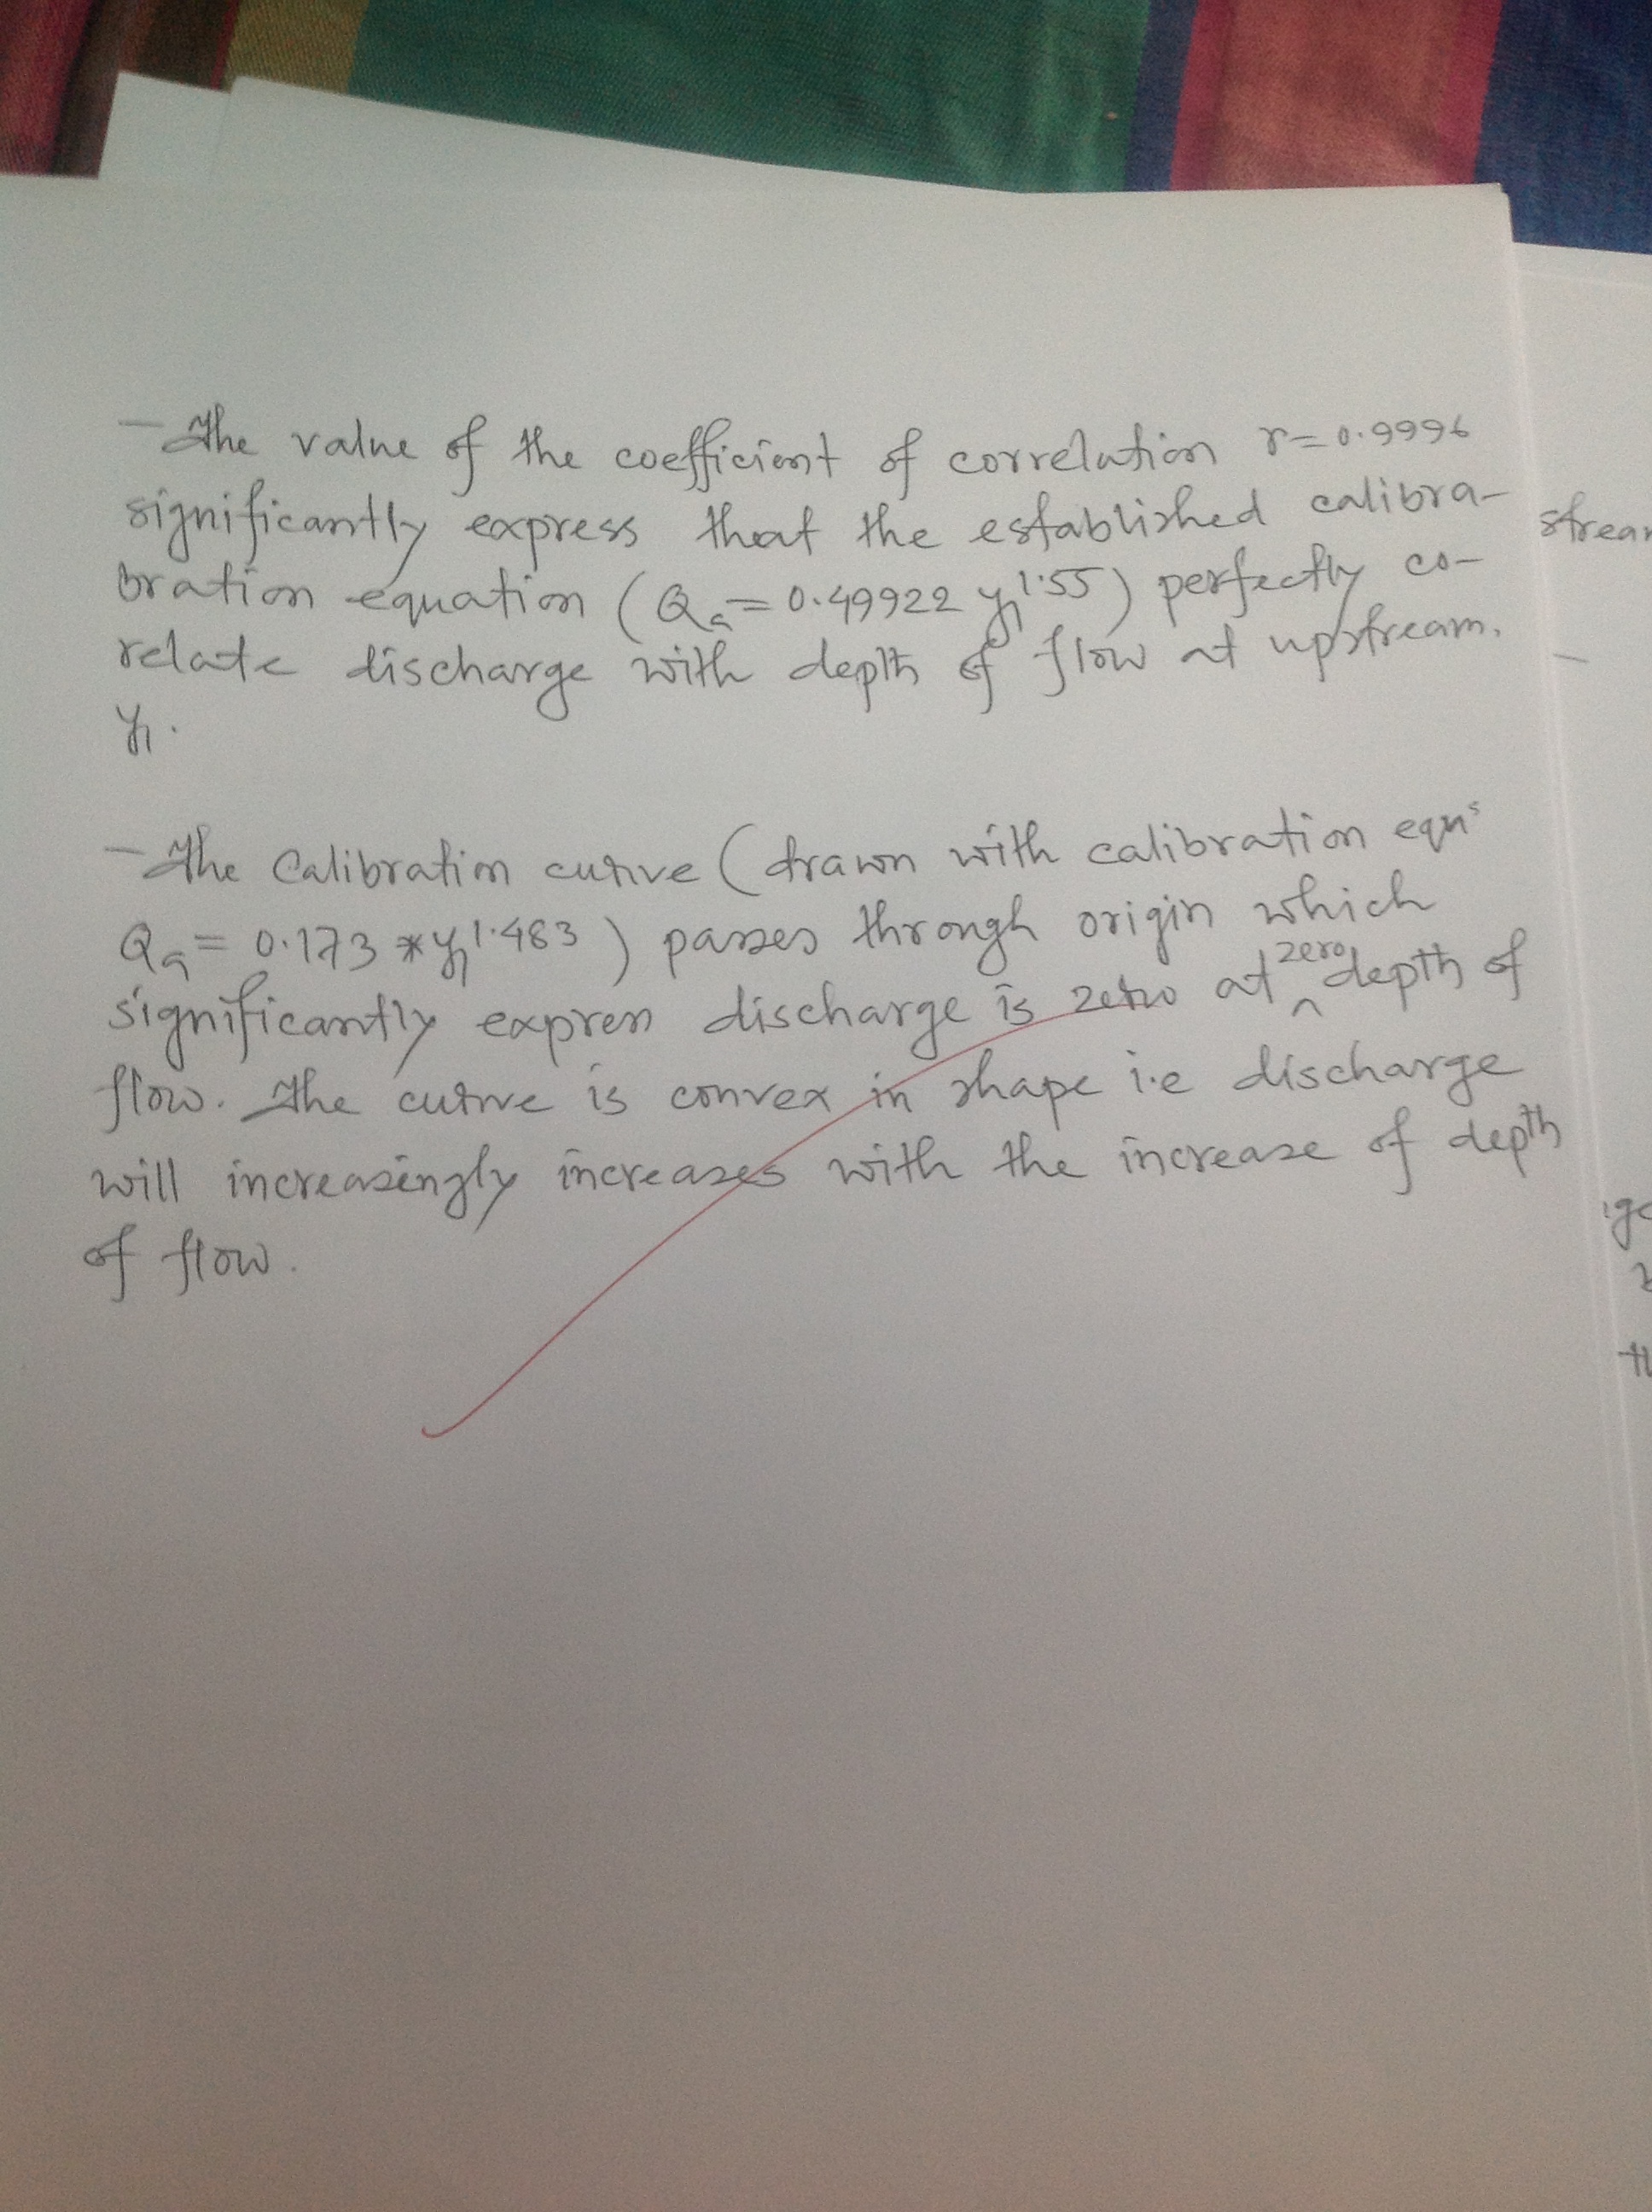 — The value of the coefficient of correlation r = 0.9996
significantly express that the established calibra-
bration equation (Qa = 0.49922 y₁^1.55) perfectly co-
relate discharge with depth of flow at upstream.
y₁.
— The Calibration curve (drawn with calibration eqnˢ
Qa = 0.173 * y₁^1.483) passes through origin which
significantly express discharge is zero at zero depth of
flow. The curve is convex in shape i.e discharge
will increasingly increases with the increase of depth
of flow.